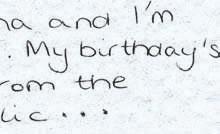 na and I'm
. My birthday's
rom the
lic...